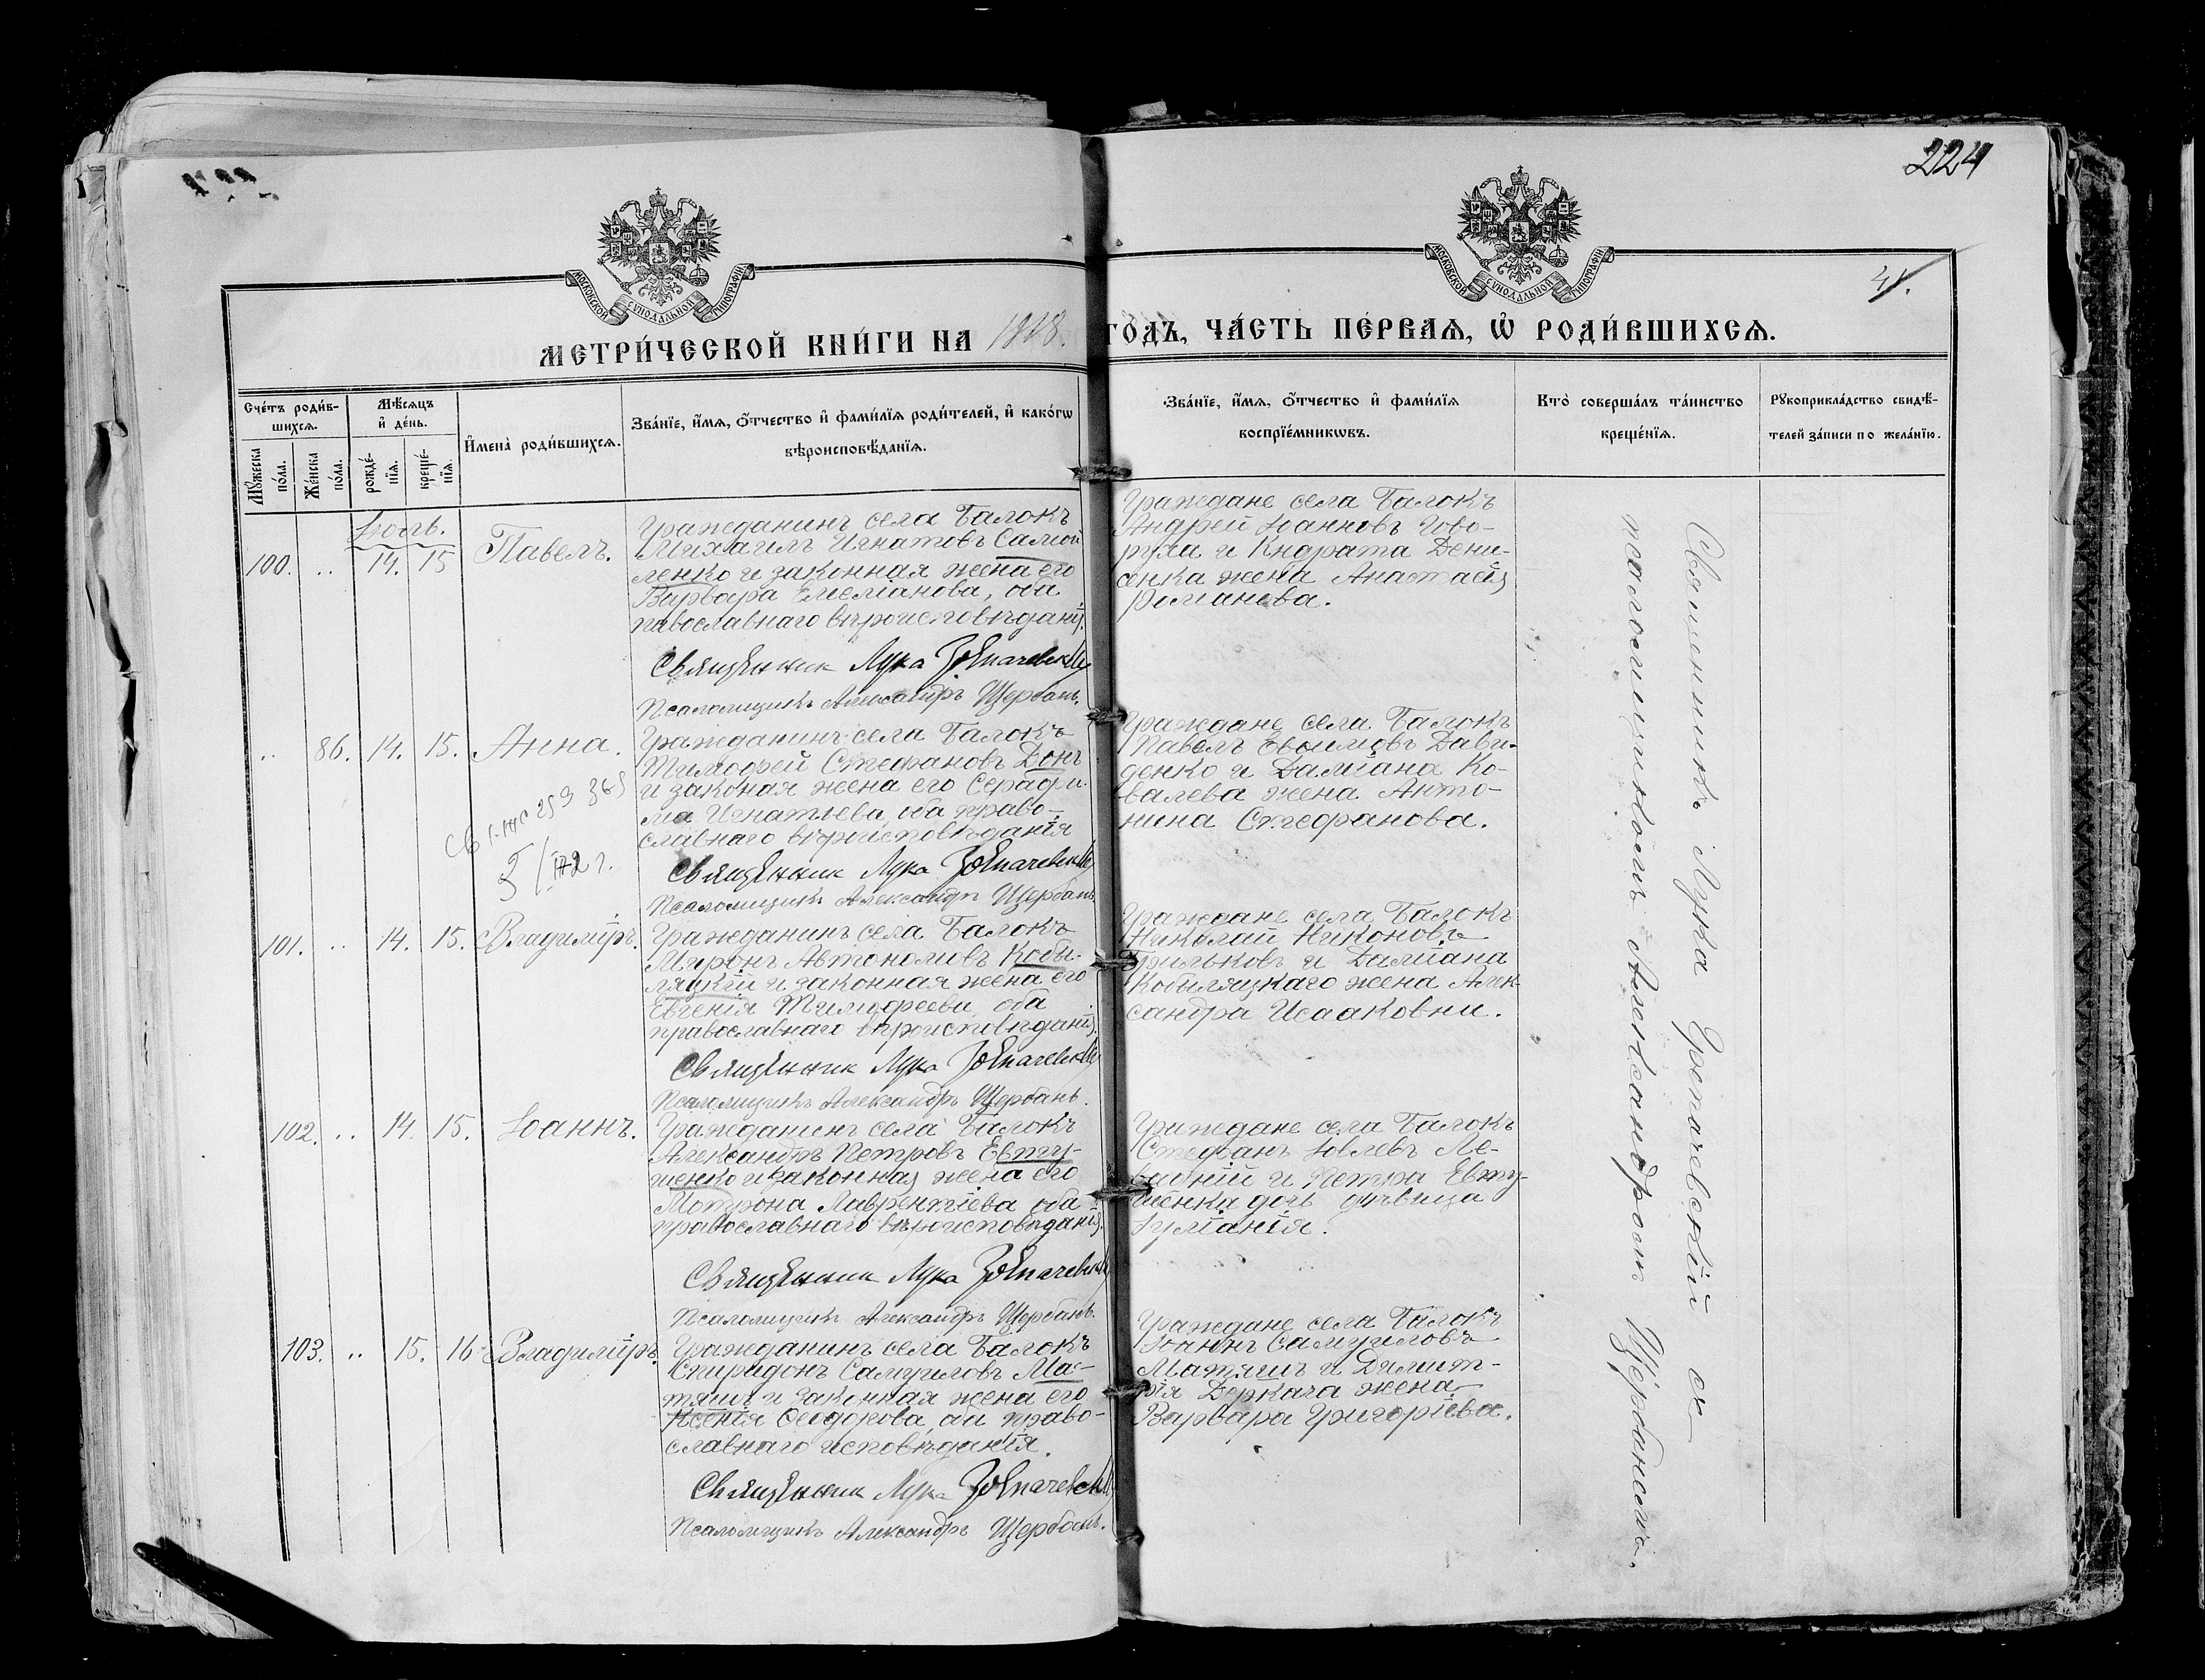 224
41.
МОСКОВСКОЙ СѴНОДАЛЬНОЙ ТИПОГРАФІИ
МОСКОВСКОЙ СѴНОДАЛЬНОЙ ТИПОГРАФІИ
МЕТРИ́ЧЕСКОЙ КНИ́ГИ НА 1918. ГО́ДЪ, ЧА́СТЬ ПЕ́РВАѦ, Ѡ҆ РОДИ́ВШИХСѦ.
Сче́тъ роди́вшихсѧ.
Мꙋ́жеска по́ла.
Же́нска по́ла.
Мѣ́сѧцъ и҆ де́нь.
рожде́нїѧ.
креще́нїѧ.
И҆мена̀ роди́вшихсѧ.
Зва́нїе, и҆́мѧ, ѻ҆́тчество и҆ фами́лїѧ роди́телей, и҆ како́гѡ
вѣроисповѣ́данїѧ.
Зва́нїе, и҆́мѧ, ѻ҆́тчество и҆ фами́лїѧ
воспрїе́мникѡвъ.
Кто̀ соверша́лъ та́инство
креще́нїѧ.
Рꙋкоприкла́дство свидѣ́-
телей за́писи по жела́нїю.
Іюль.
100. .. 14. 15 Павелъ.
Гражданинъ села Балокъ
Михаилъ Игнатовъ Самой
ленко и законная жена его
Варвара Емеліанова, оба
павославнаго вѣроисповѣданія.
Священник Лука
Псаломщикъ Александръ Щербань.
Граждане села Балокъ
Андрей Іоанновъ Гово-
руха и Кндрата Дени-
сенка жена Анастасія
Романова.
.. 86. 14. 15. Анна.
Гражданинъ села Балокъ
Тимофей Стефановъ Донъ
и законая жена его Серафи-
ма Игнатьева, оба право-
славнаго вѣроисповѣданія
Священник Лука
Псаломщикъ Александръ Щербань.
Граждане села Балокъ
Павелъ Евфимовъ Дави-
денко и Даміана Ко-
валева жена Анто-
нина Стефанова.
101. .. 14. 15. Владиміръ.
Гражданинъ села Балокъ
Миронъ Автономовъ Кобы-
ляцкій и законная жена его
Евгенія Тимофеева оба
православнаго вѣроисповѣданія.
Священник Лука
Псаломщикъ Александръ Щербань.
Граждане села Балокъ
Николай Никоновъ
и Даміана
Кобыляцкаго жена Алек-
сандра Исааковни.
102. .. 14. 15. Іоаннъ.
Гражданинъ села Балокъ
Александръ Петровъ Евту-
шенко и законная жена его
Мотрона Лаврентіева оба
православнаго вѣроисповѣданія.
Священник Лука
Псаломщикъ Александръ Щербань.
Граждане села Балокъ
Стефанъ Іовлевъ Ле-
вадній и Петра Евту-
шенка дочь дѣвица
Іуліанія.
103. .. 15. 16 Владиміръ.
Гражданинъ села Балокъ
Спиридонъ Самуиловъ Ма-
тяшъ и законная жена его
Ксенія Ѳеодорова, оба право-
славнаго исповѣданія.
Священник Лука
Псаломщикъ Александръ Щербань.
Граждане села Балокъ
Іоаннъ Самуиловъ
Матяшъ и Димит-
рія Деркача жена
Варвара Григоріева.
Священникъ Лука Грепачевскій съ
псаломщикомъ Александромъ Щербанемъ.